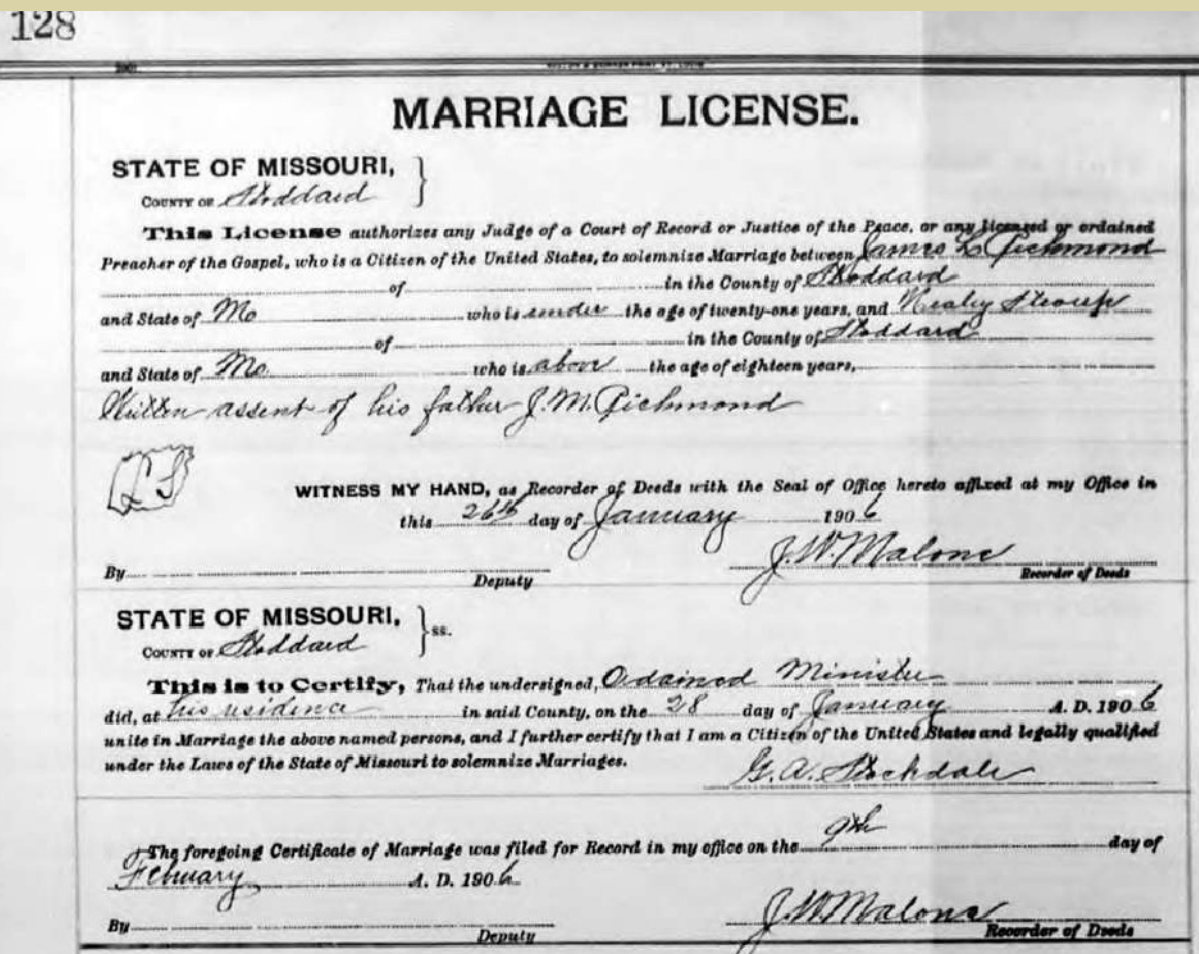 128
MARRIAGE LICENSE.
STATE OF MISSOURI,
COUNTY OF Stoddard
This License authorizes any Judge of a Court of Record or Justice of the Peace, or any licensed or ordained
Preacher of the Gospel, who is a Citizen of the United States, to solemnize Marriage between James L Richmond
of in the County of Stoddard
and State of Mo who is under the age of twenty-one years, and Nealy
of in the County of Stoddard
and State of Mo. who is above the age of eighteen years,
Written assent of his father J. M. Richmond
LS
WITNESS MY HAND, as Recorder of Deeds with the Seal of Office hereto affixed at my Office in
this 26th day of January 1906
J. W. Malone
By Deputy Recorder of Deeds
STATE OF MISSOURI,
COUNTY OF Stoddard ss.
This is to Certify, That the undersigned, Ordained Minister
did, at his residence in said County, on the 28 day of January A. D. 1906
unite in Marriage the above named persons, and I further certify that I am a Citizen of the United States and legally qualified
under the Laws of the State of Missouri to solemnize Marriages.
G. A. Stockdale
The foregoing Certificate of Marriage was filed for Record in my office on the 9th day of
February A. D. 1906
J. W. Malone
By Deputy Recorder of Deeds